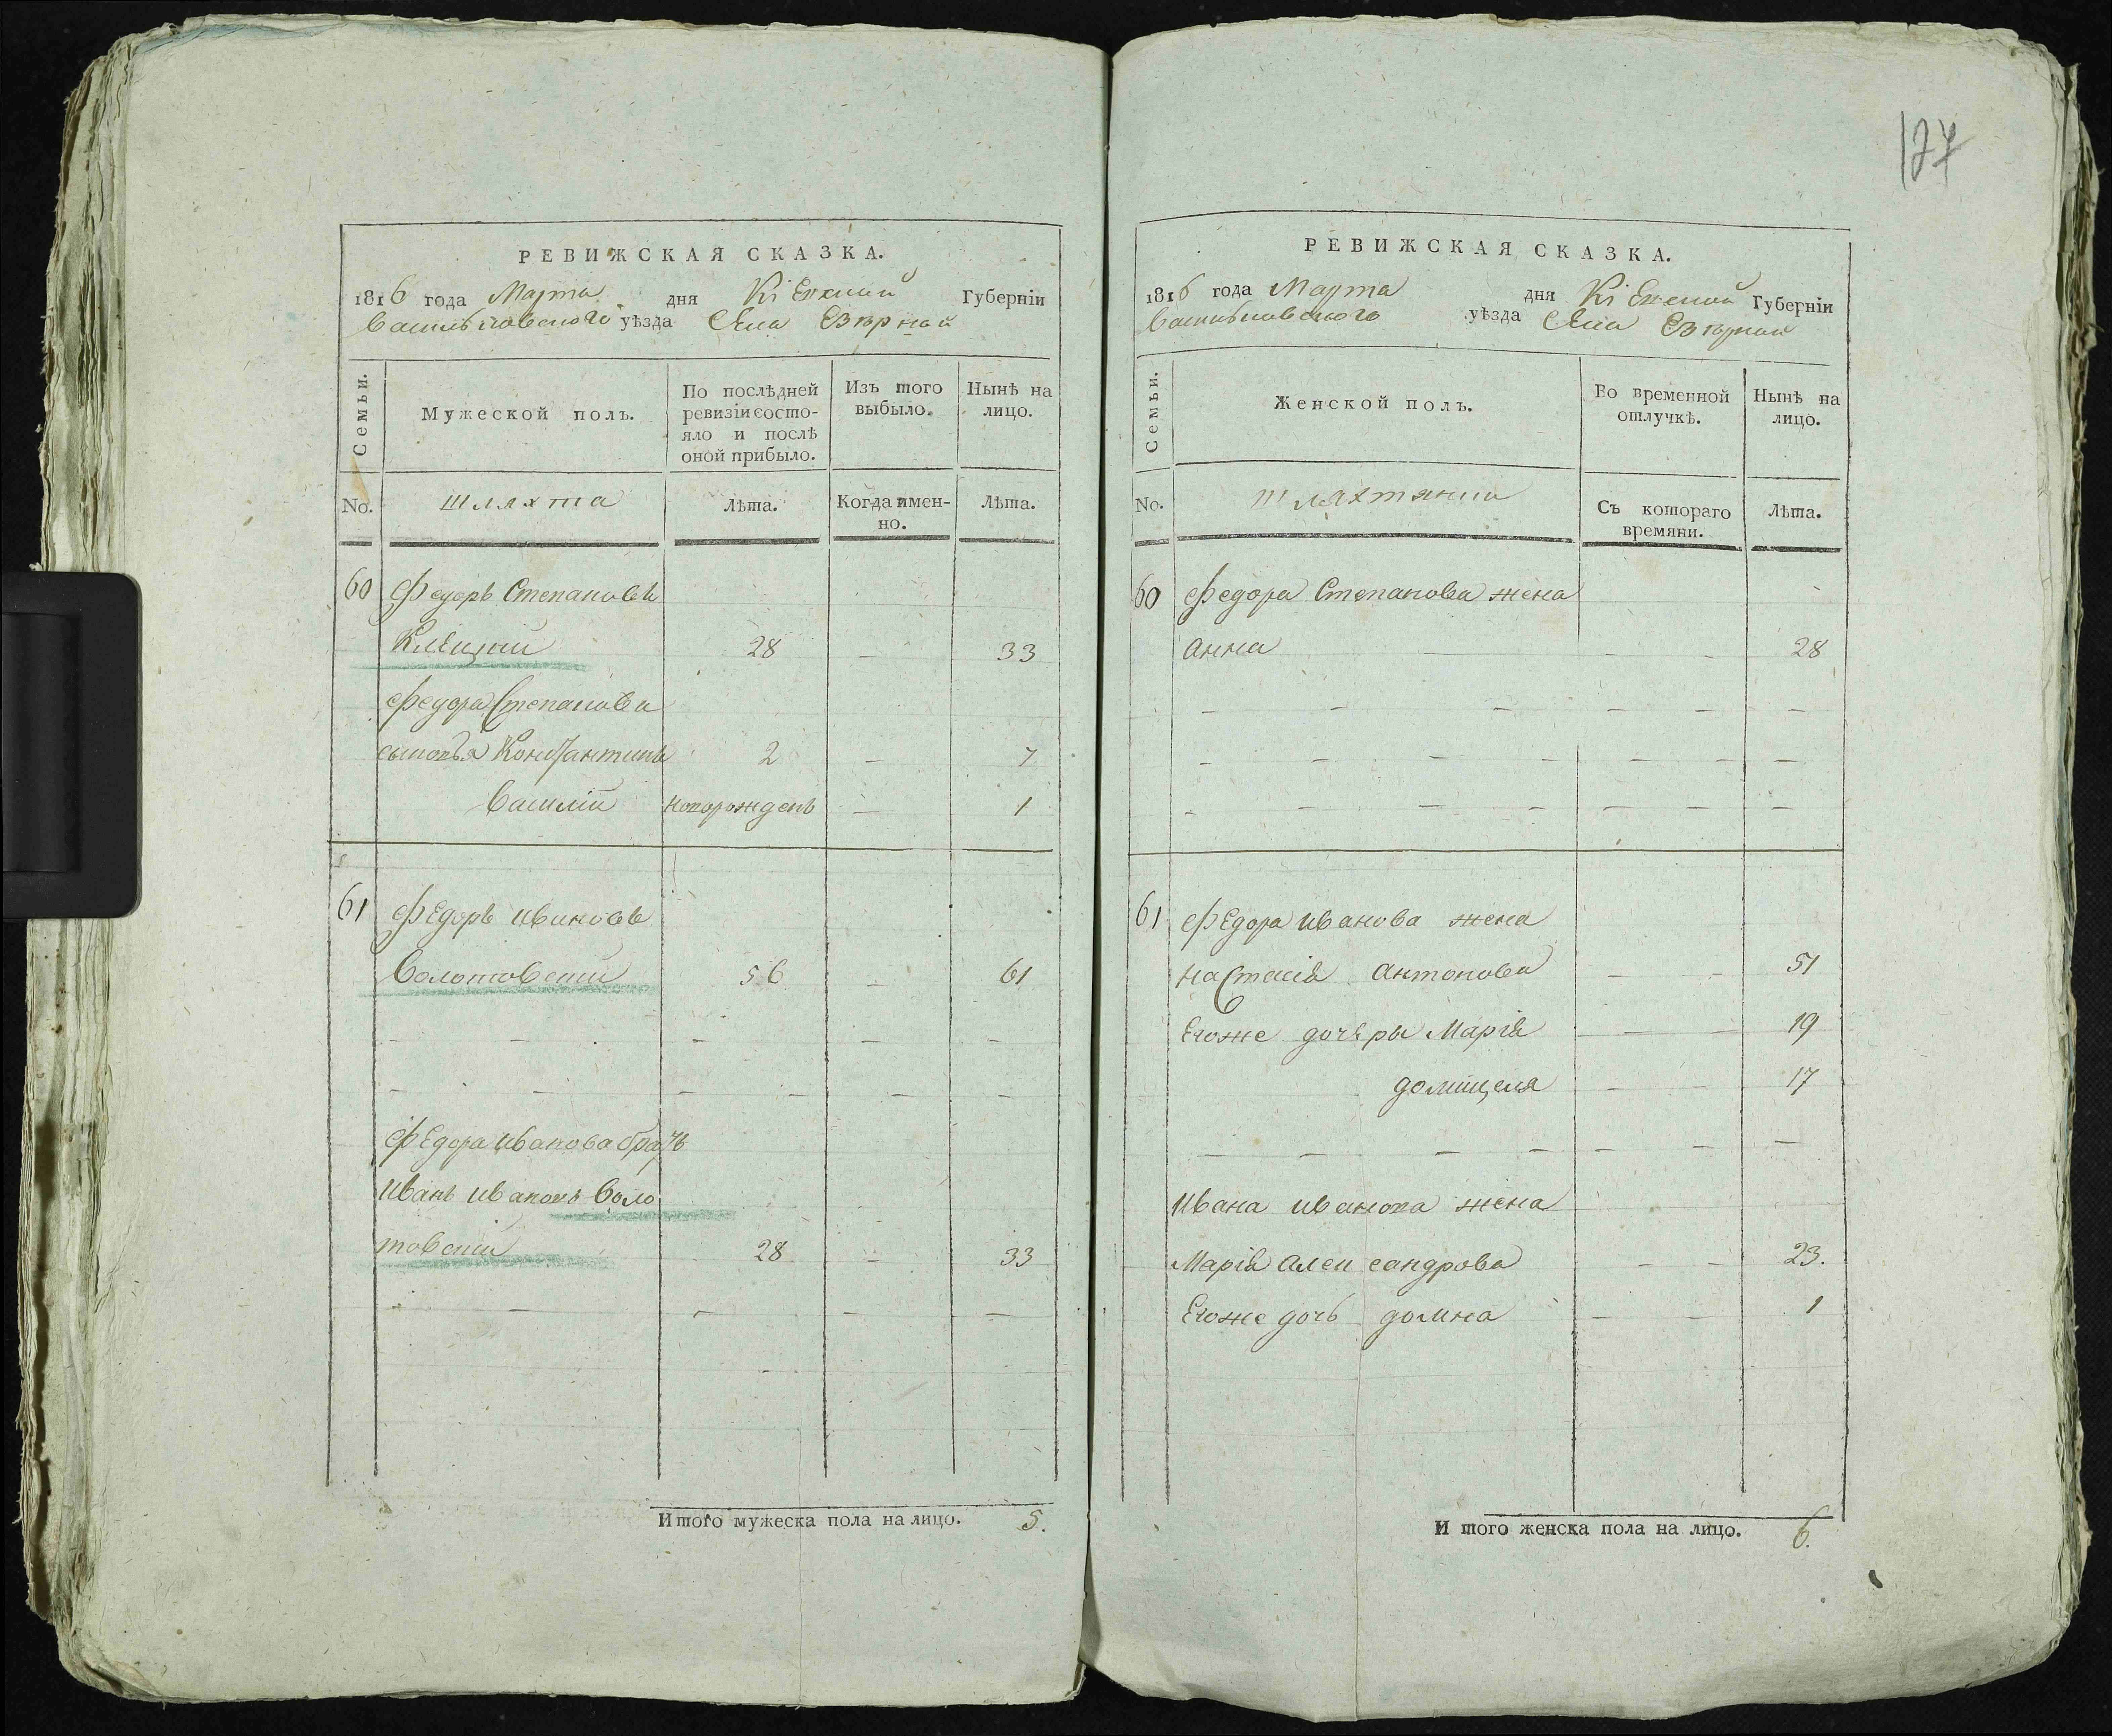 127
РЕВИЖСКАЯ СКАЗКА.
1816 года Марта дня Кіевской Губерніи
Васильковского уѣзда Села Езѣрной
Семьи.
Мужеской полъ.
По послѣдней ревизіи состо-
яло и послѣ
оной прибыло.
Изъ того
выбыло.
Нынѣ на
лицо.
No.
Шляхта
Лѣта.
Когда имен-
но.
Лѣта.
60 Федоръ Степановъ
Клецкій 28 — 33
Федора Степанова
сыновья Константинъ 2 — 7
Василій новорожденъ — 1
61 Федоръ Ивановъ
56 — 61
Федора Иванова братъ
Иванъ Ивановъ Воло
товскій 28 — 33
Итого мужеска пола на лицо. 5.
РЕВИЖСКАЯ СКАЗКА.
1816 года Марта дня Кіевской Губерніи
Васильковского уѣзда Села Езѣрной
Семьи.
Женской полъ.
Во временной
отлучкѣ.
Нынѣ на
лицо.
No.
Шляхтянки
Съ котораго
времяни.
Лѣта.
60 Федора Степанова жена
Анна — — 28
61 Федора Иванова жена
Настасія Антонова — — 51
Егоже дочѣры Марія — — 19
Доміцеля — — 17
Ивана Иванова жена
Марія Александрова — — 23.
Егоже дочь Домна — — 1
Итого женска пола на лицо. 6.